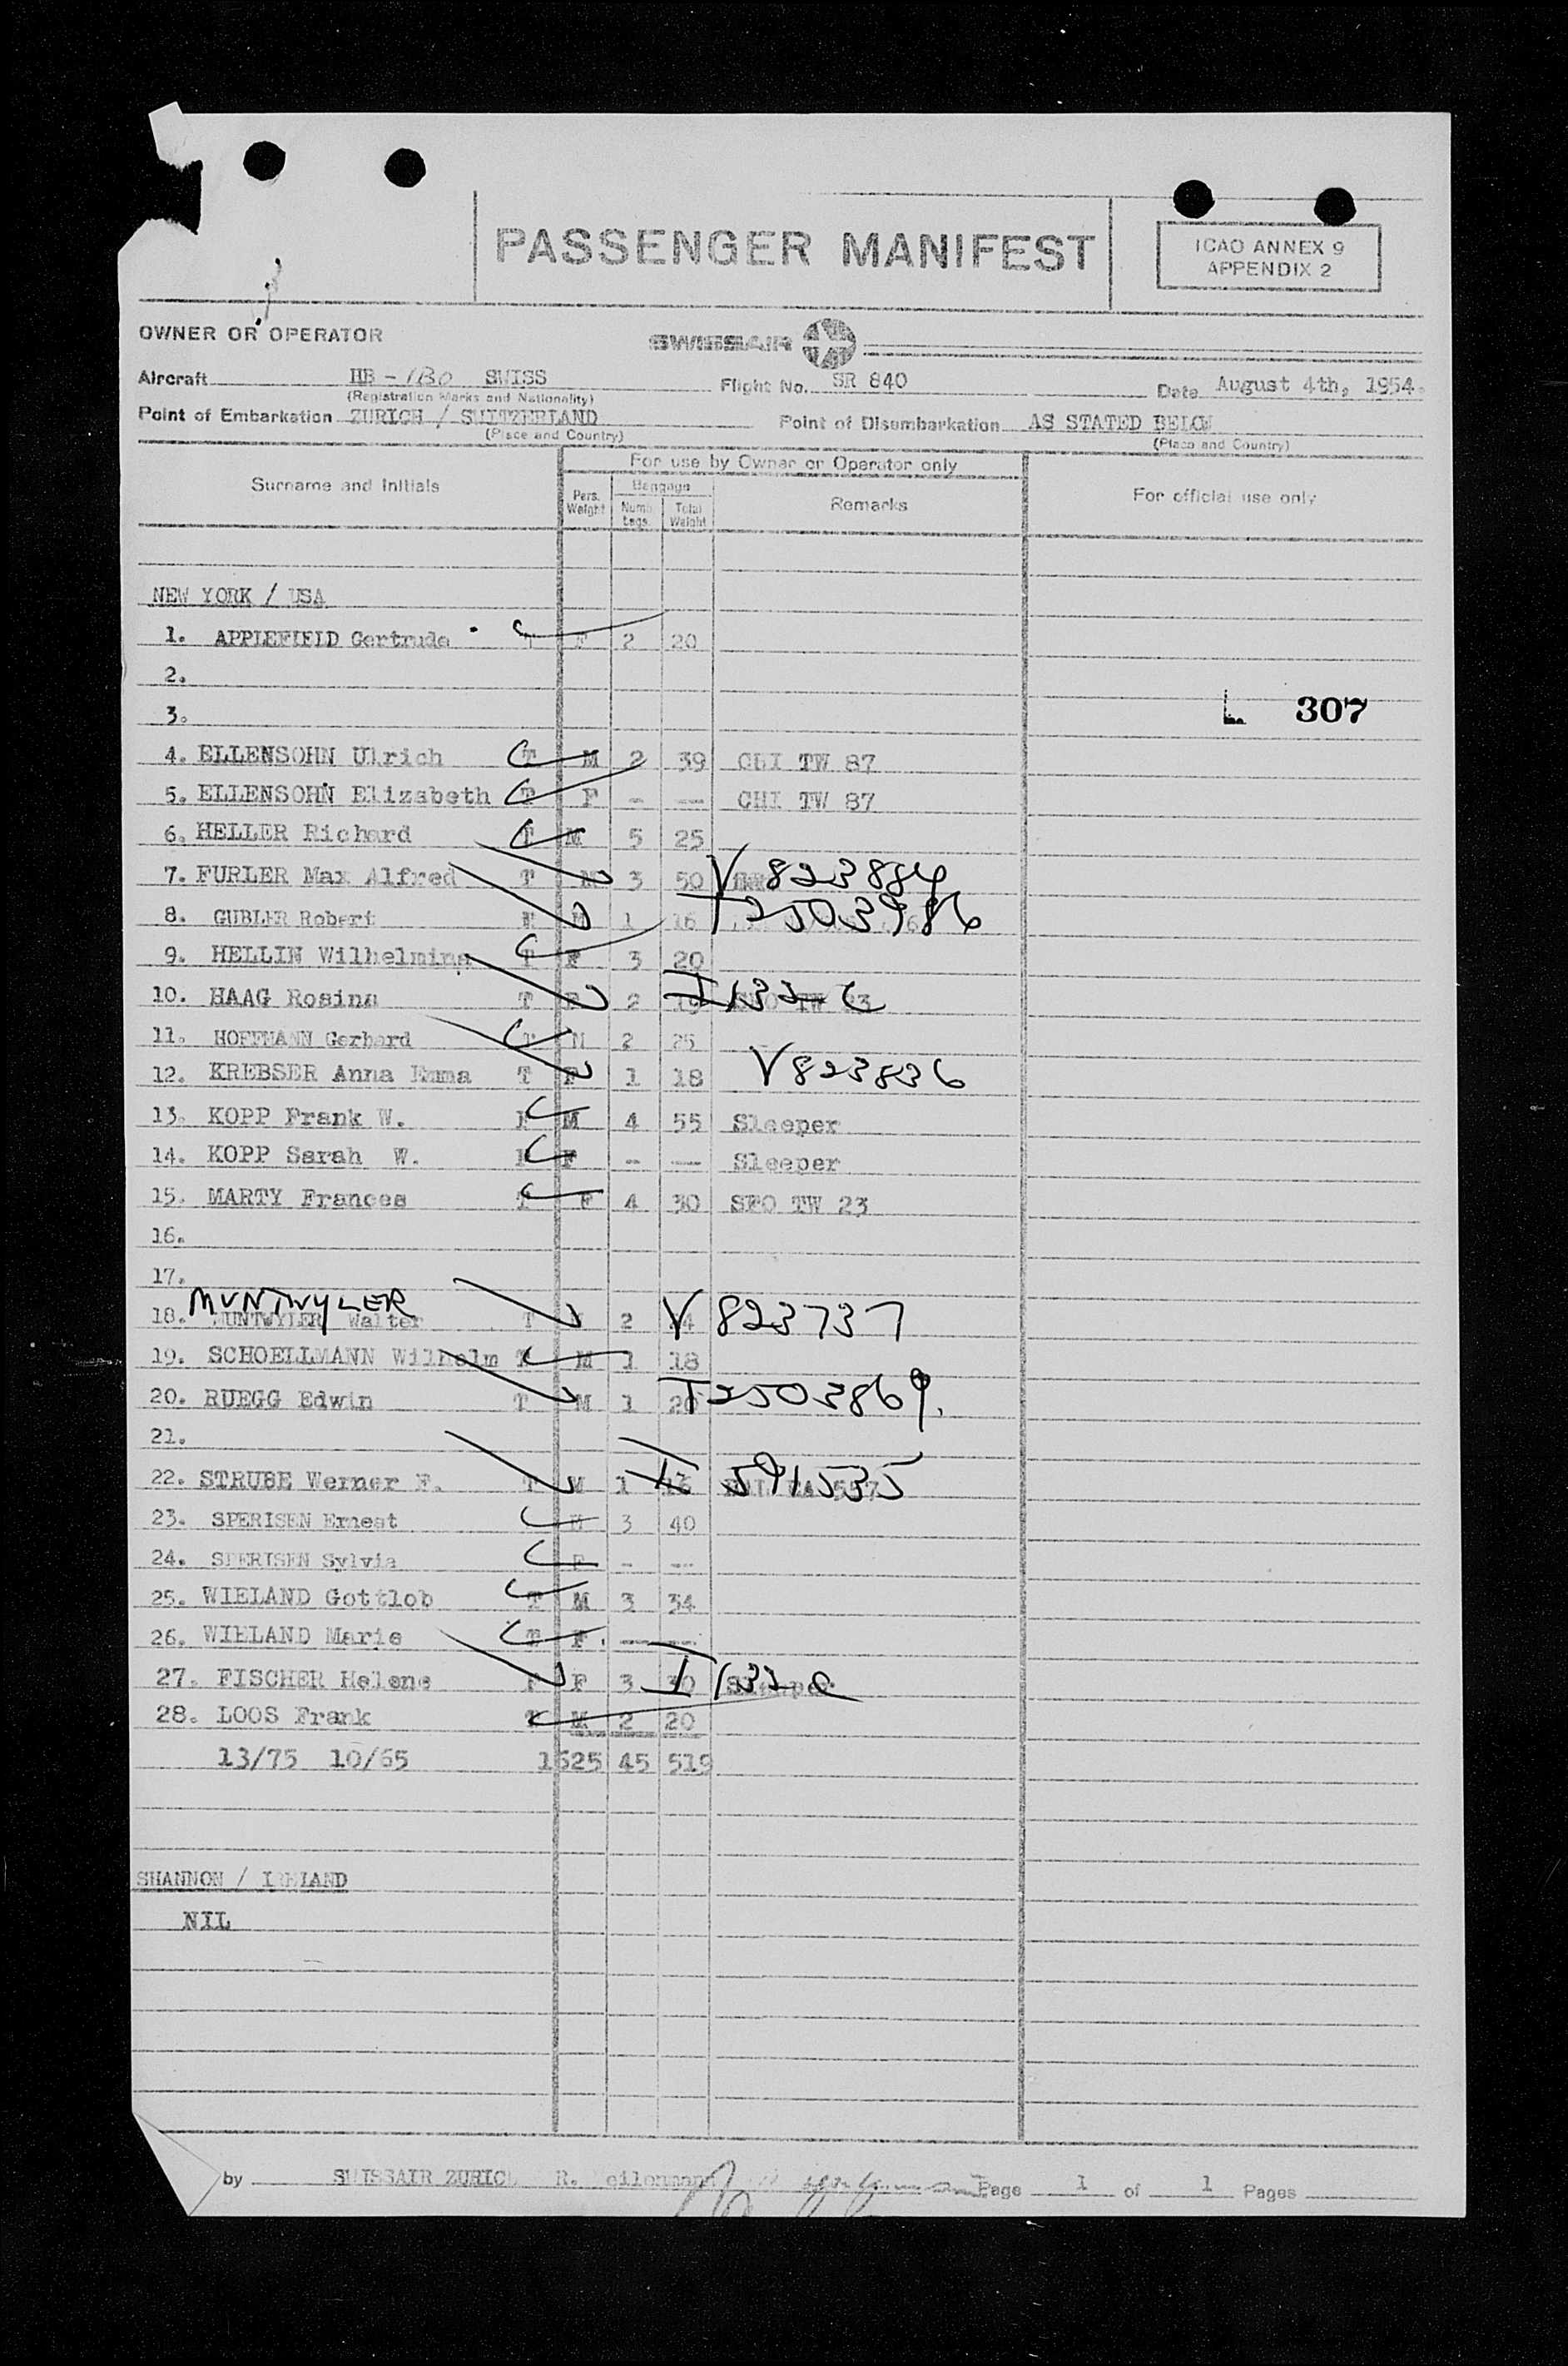 PASSENGER MANIFEST
ICAO ANNEX 9
APPENDIX 2
OWNER OR OPERATOR SWISSAIR
Aircraft HB - IBO SWISS Flight No. SR 840 Date August 4th, 1954.
(Registration Marks and Nationality)
Point of Embarkation ZURICH / SWITZERLAND Point of Disembarkation AS STATED BELOW
(Place and Country) (Place and Country)
For use by Owner or Operator only
Surname and Initials Pers. Weight Baggage Numb. Total Weight Remarks For official use only
NEW YORK / USA
1. APPLEFIELD Gertrude T F 2 20
2.
3. L. 307
4. ELLENSOHN Ulrich T M 2 39 CHI TW 87
5. ELLENSOHN Elizabeth T F - -- CHI TW 87
6. HELLER Richard T M 5 25
7. FURLER Max Alfred T M 3 50 V 823884
8. GUBLER Robert M 1 16 T2503986
9. HELLIN Wilhelmina T F 3 20
10. HAAG Rosina T F 2 19 TW 23
11. HOFFMANN Gerhard T M 2 25
12. KREBSER Anna Emma T F 1 18 V823836
13. KOPP Frank W. F M 4 55 Sleeper
14. KOPP Sarah W. F F - -- Sleeper
15. MARTY Frances T F 4 30 SFO TW 23
16.
17.
MUNTWYLER
18. MUNTWYLER Walter T 2 V 823737
19. SCHOELLMANN Wilhelm T M 1 18
20. RUEGG Edwin T M 1 20 T2503869.
21.
22. STRUBE Werner F. T M 1 16 I 591535
23. SPERISEN Ernest M 3 40
24. SPERISEN Sylvia F - --
25. WIELAND Gottlob T M 3 34
26. WIELAND Marie T F. -- --
27. FISCHER Helene F F 3 30 Sleeper
28. LOOS Frank T M 2 20
13/75 10/65 1625 45 519
SHANNON / IRELAND
NIL
by SWISSAIR ZURICH R. Page 1 of 1 Pages